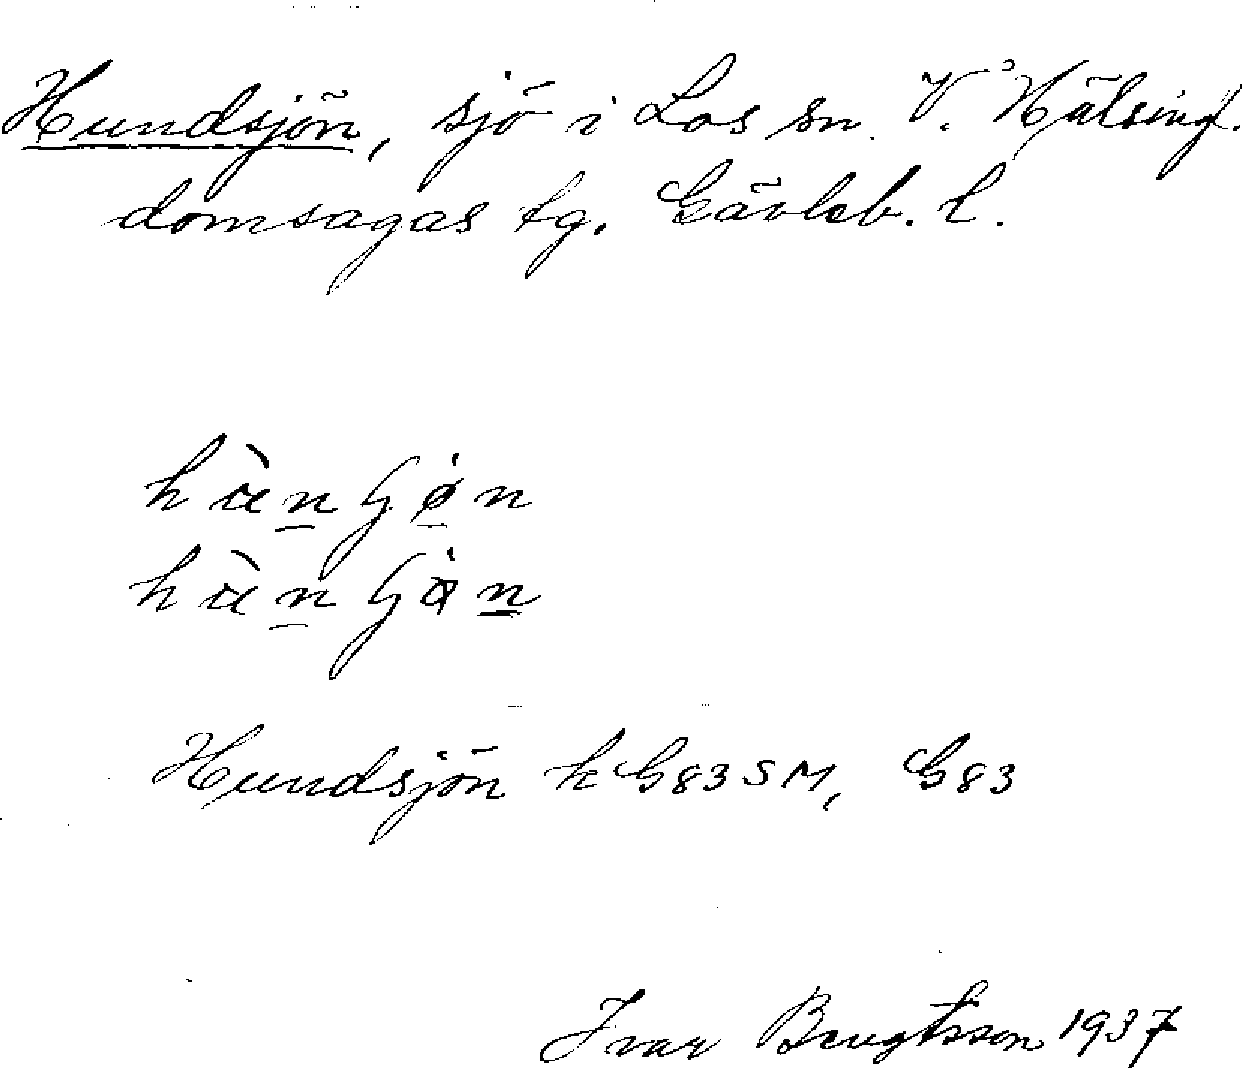 Hundsjön, sjö i Los sn. V. Hälsingl.
domsagas tg. Gävleb. l.
Hundsjön kG83SM, G83
Ivar Bengtsson 1937